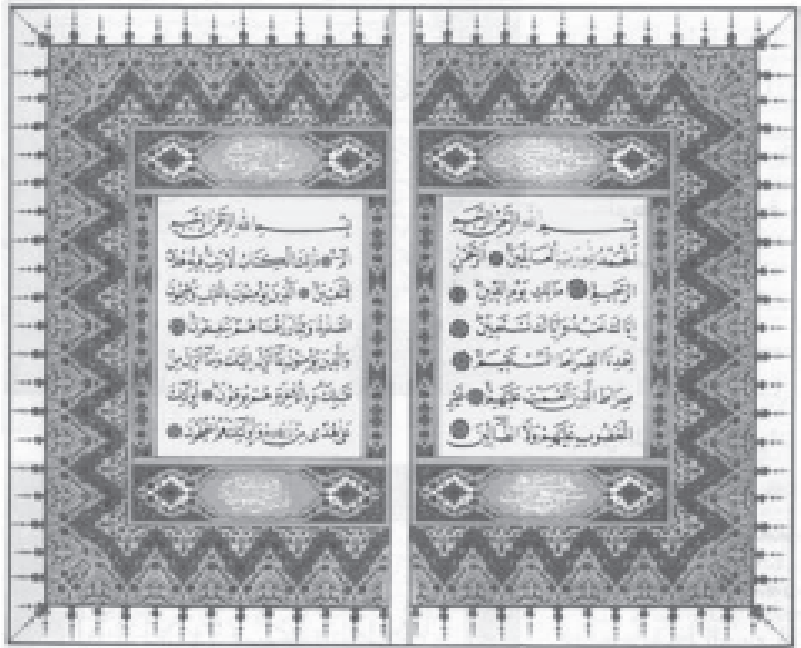 بِسْمِ اللهِ الرَّحْمٰنِ الرَّحِيمِ
اَلْحَمْدُ لِلّٰهِ رَبِّ الْعَالَمِينَ اَلرَّحْمٰنِ
الرَّحِيمِ مَالِكِ يَوْمِ الدِّينِ
اِيَّاكَ نَعْبُدُ وَاِيَّاكَ نَسْتَعِينُ
اِهْدِنَا الصِّرَاطَ الْمُسْتَقِيمَ
صِرَاطَ الَّذِينَ اَنْعَمْتَ عَلَيْهِمْ غَيْرِ
الْمَغْضُوبِ عَلَيْهِمْ وَلَا الضَّالِّينَ
بِسْمِ اللهِ الرَّحْمٰنِ الرَّحِيمِ
الٓمٓ ذٰلِكَ الْكِتَابُ لَا رَيْبَ فِيهِ هُدًى
لِلْمُتَّقِينَ اَلَّذِينَ يُؤْمِنُونَ بِالْغَيْبِ وَيُقِيمُونَ
الصَّلٰوةَ وَمِمَّا رَزَقْنَاهُمْ يُنْفِقُونَ
وَالَّذِينَ يُؤْمِنُونَ بِمَا اُنْزِلَ اِلَيْكَ وَمَا اُنْزِلَ مِنْ
قَبْلِكَ وَبِالْاٰخِرَةِ هُمْ يُوقِنُونَ اُولٰئِكَ
عَلٰى هُدًى مِنْ رَبِّهِمْ وَاُولٰئِكَ هُمُ الْمُفْلِحُونَ